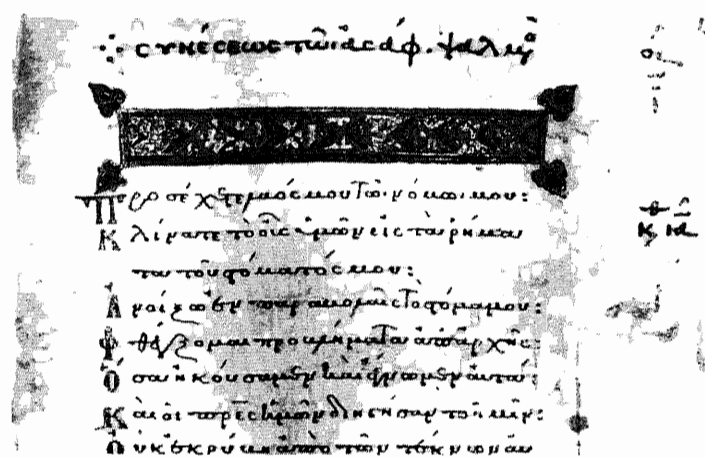 συνέσεως τῶι ἀσάφ. ψαλμὸ
Προσέχετε λαός μου τῶ νόμω μου:
Κλίνατε τὸ οὖς ὑμῶν εἰς τὰ ῥήμα
τα τοῦ στόματός μου:
Ἀνοίξω ἐν παραβολαῖς τὸ στόμα μου:
Φθέγξομαι προβλήματα ἀπ' ἀρχῆς:
Ὅσα ἠκούσαμεν καὶ ἔγνωμεν αὐτά:
Καὶ οἱ πρες ἡμῶν διηγήσαντο ἡμῖν:
Οὐκ ἐκρύβη ἀπὸ τῶν τέκνων αὐ